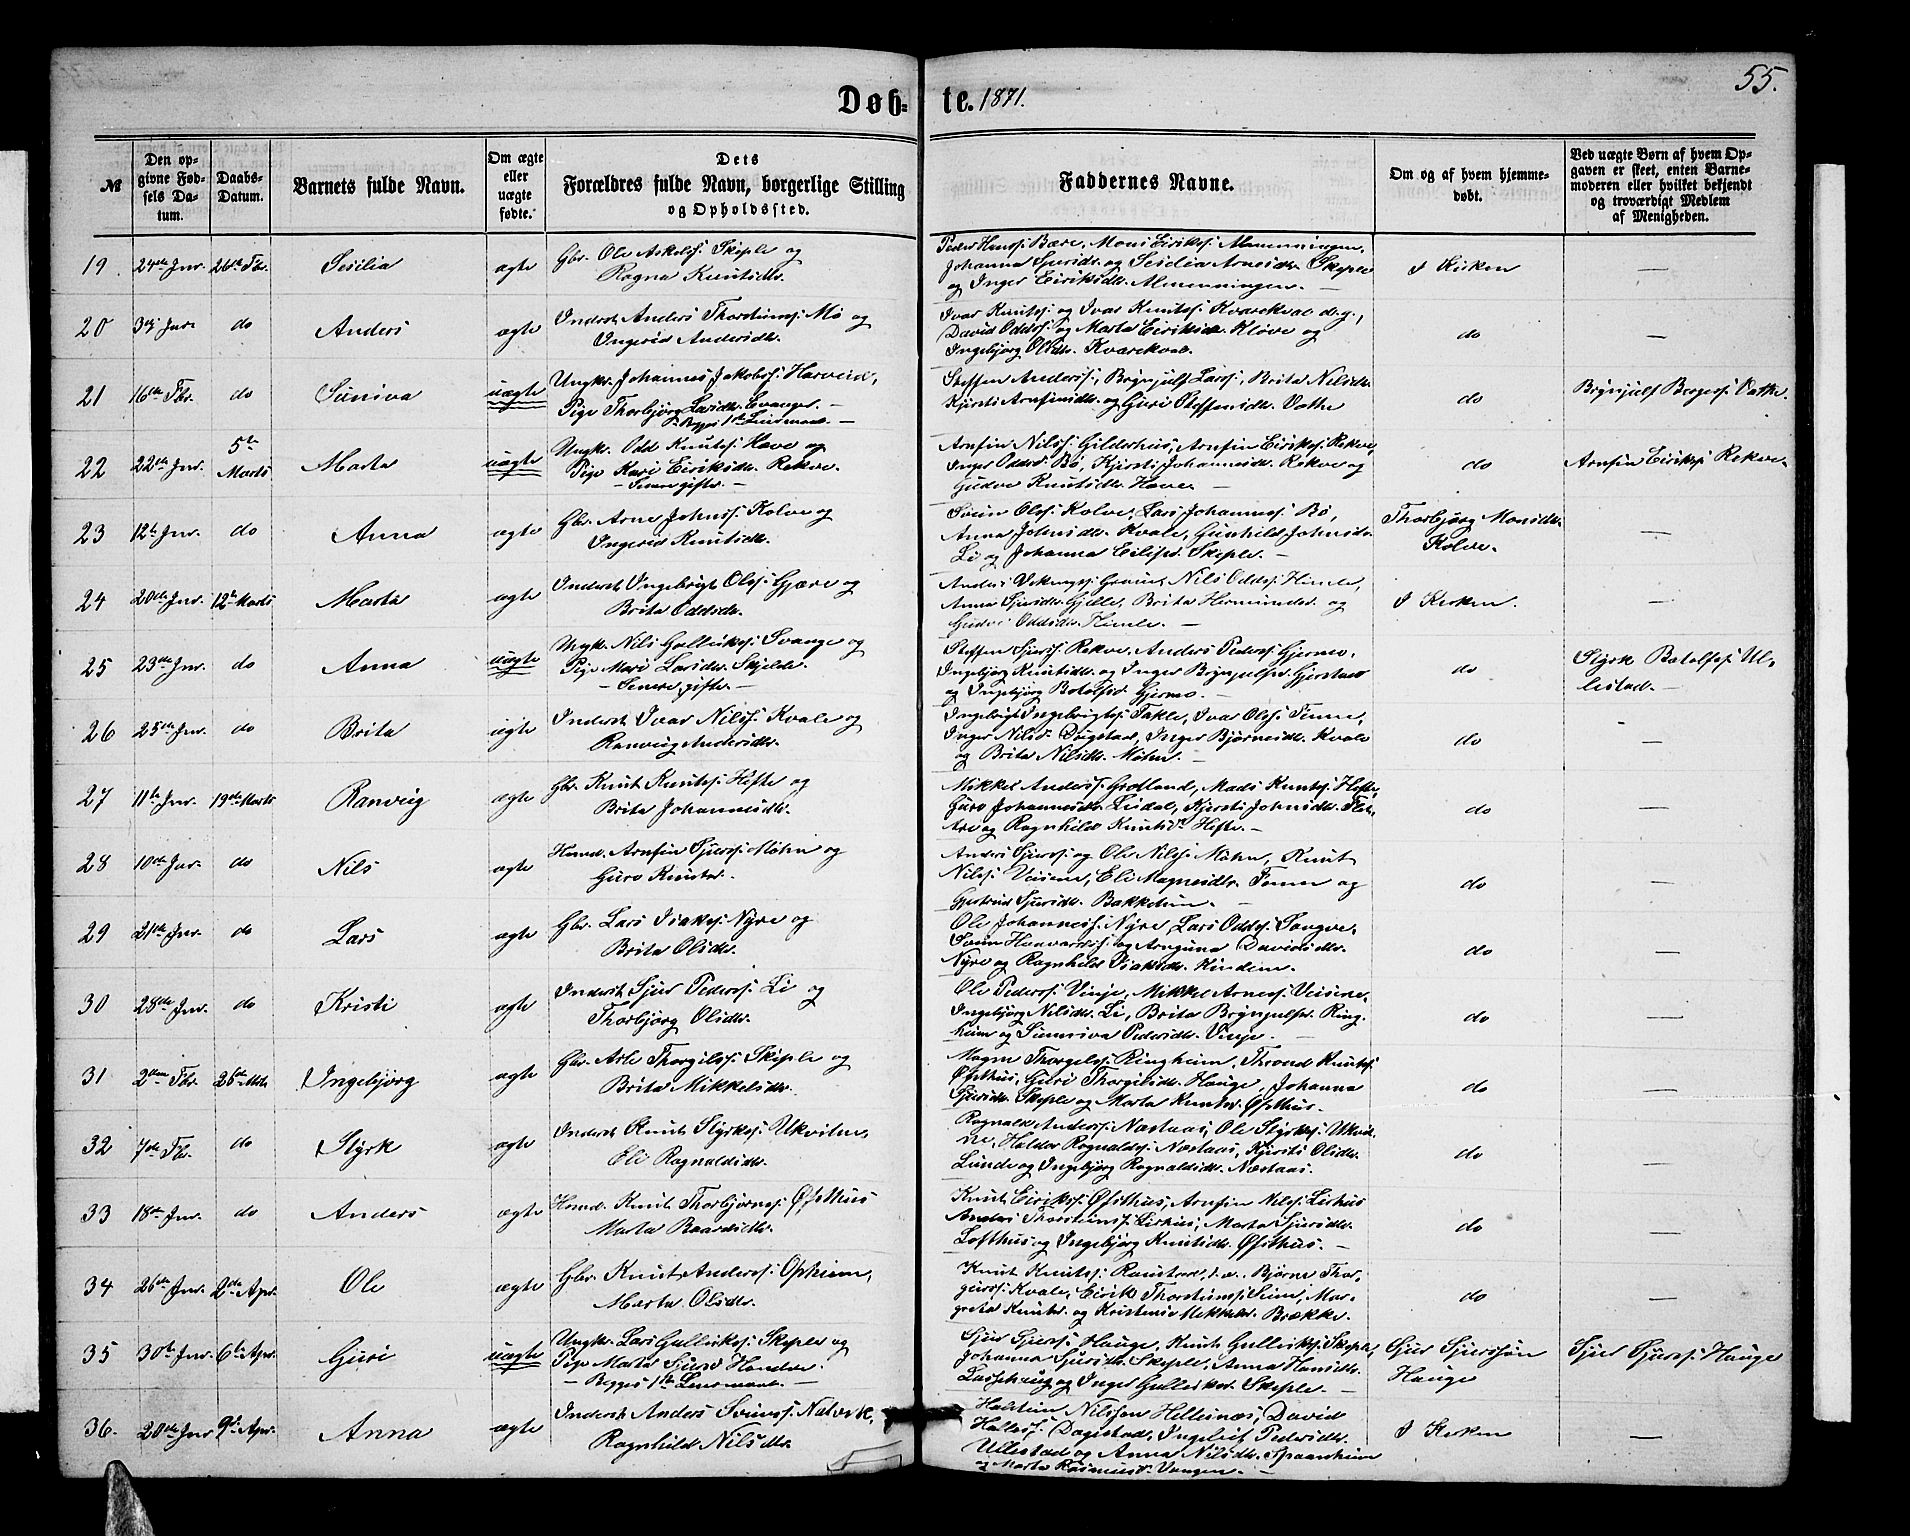 55.
Døb- te. 1871.
№
Den op-
givne Fød-
sels Da-
tum.
Daabs-
Datum.
Barnets fulde Navn.
Om ægte
eller
uægte
fødte.
Dets
Forældres fulde Navn, borgerlige Stilling
og Opholdssted.
Faddernes Navne.
Om og af hvem hjemme-
døbt.
Ved uægte Børn af hvem Op-
gaven er skeet, enten Barne-
moderen eller hvilket bekjendt
og troværdigt Medlem
af Menigheden.
19. 24de Jnr. 26de Fbr. Sesilia ægte Gbr. Ole Askelss. Skiple og
Ragna Knutsdtr.
Peder Hanss. Bære, Mons Eirikss. Almenningen,
Johanna Sjursdtr. og Sesilia Arnesdtr. Skiple
og Inger Eiriksdtr. Almenningen. —
I Kirken —
20 3die Jnr. do Anders ægte Inderst. Anders Thorsteinss. Mø og
Ingerid Andersdtr.
Ivar Knutss. og Ivar Knutss. Kvarekval d.y.,
David Oddss. og Marta Eiriksdr. Kløve og
Ingebjørg Olsdtr. Kvarekval.
do —
21 16de Fbr. do Suniva uægte Ungkr. Johannes Jakobss. Harveid,
Pige Thorbjørg Larsdtr. Evanger. —
— Begges 1ste Leiermaal. —
Steffen Anderss., Brynjulf Larss., Brita Nilsdtr.
Kjersti Arnfinsdtr. og Guri Steffensdtr. Vathe
do Brynjulf Brynjess. Vathe.
22 22de Jnr. 5te Marts Marta uægte Ungkr. Odd Knutss. Hæve og
Pige Kari Eiriksdtr. Rekve.
— Senere gifte. —
Arnfin Nilss. Gilderhus, Arnfin Eirikss. Rekve,
Inger Oddsd. Bø, Kjersti Johannesdr. Rekve og
Gudve Knutsdtr. Hæve. —
do Arnfin Eirikss. Rekve.
23 12te Jnr. do Anna ægte Gbr. Arne Johnss. Kolve og
Ingerid Knutsdtr.
Svein Olss. Kolve, Lars Johanness. Bø,
Anna Johnsdtr. Kvale, Gunhild Johnsdr.
Li og Johanna Eilifsd. Skiple. —
Thorbjørg Monsdtr.
Kolve.
24 20de Jnr. 12te Marts Marta ægte Inderst. Ingebrigt Olss. Gjære og
Brita Oddsdtr.
Anders Vikingss. Graue, Nils Oddss. Himle,
Anna Sjursdtr. Gjelle, Brita Hermundsd. og
Gudve Oddsdtr. Himle. —
I Kirken. —
25 23de Jnr. do Anna uægte Ungkr. Nils Gullikss. Svange og
Pige Mari Larsdtr. Skjelde.
— Senere gifte. —
Steffen Sjurss. Rekve, Anders Pederss. Gjerme,
Ingebjørg Knutsdtr. og Inger Brynjulfsd. Gjerstad
og Ingebjørg Botolfsd. Gjerme. —
do Styrk Botolfss. Ul-
lestad. —
26 25de Jnr. do Brita ægte Inderst. Ivar Nilss. Kvale og
Ranveig Andersdtr.
Ingebrigt Ingebrigtss. Takle, Ivar Olss. Finne,
Inger Nilsd. Dugstad, Inger Bjørnesdtr. Kvale
og Brita Nilsdtr. Møhn. —
do —
27 11te Jnr. 19de Marts Ranveig ægte Gbr. Knut Knutss. Hefte og
Brita Johannesdtr.
Mikkel Anderss. Grotland, Mads Knutss. Hefte,
Guro Johannesdr. Leidal, Kjersti Johnsdtr. Flet-
re og Ragnhild Knutsdr. Hefte. —
do —
28 10de Jnr. do Nils ægte Husmd. Arnfin Sjurss. Møhn og
Guro Knutsd. —
Anders Sjurss. og Ole Nilss. Møhn, Knut
Nilss. Veisene, Eli Magnesdtr. Finne og
Gjertrud Sjursdtr. Bakketun. —
do —
29 21de Jnr. do Lars ægte Gbr. Lars Isakss. Nyre og
Brita Olsdtr.
Ole Johanness. Nyre, Lars Oddss. Saugve,
Svein Haavardss. og Arnguna Davidsdtr.
Nyre og Ragnhild Isaksdtr. Kindem.
do —
30 28de Jnr. do Kristi ægte Inderst. Sjur Pederss. Li og
Thorbjørg Olsdtr.
Ole Pederss. Vinje, Mikkel Arness. Veisene,
Ingebjørg Nilsdtr. Li, Brita Brynjulfsd. Ring-
heim og Sunniva Pedersdtr. Vinje.
do —
31 2den Fbr. 26de Mts. Ingebjørg ægte Gbr. Atle Thorgilss. Skiple og
Brita Mikkelsdtr.
Magne Thorgelss. Ringheim, Thrond Knutss.
Øfsthus, Guri Thorgilsdtr. Hauge, Johanna
Sjursdtr. Skiple og Marta Knutsd. Øfsthus.
do —
32 7de Fbr. do Styrk ægte Inderst. Knut Styrkss. Ukvitne,
Eli Ragnaldsdtr.
Ragnald Anderss. Næstaas, Ole Styrkss. Ukvit-
ne, Haldor Ragnaldss. Næstaas, Kjersti Olsdtr.
Lunde og Ingebjørg Ragnaldsdtr. Næstaas.
do —
33 18de Jnr. do Anders ægte Husmd. Knut Thorbjørnss. Øfsthus
Marta Baardsdtr.
Knut Eirikss. Øfsthus, Arnfin Nilss. Lirhus
Anders Thorsteinss. Lirhus, Marta Sjursdtr.
Lofthus og Ingebjørg Knutsdtr. Øfsthus. —
do —
34 26de Jnr. 2den Apr. Ole ægte Gbr. Knut Anderss. Opheim,
Marta Olsdtr.
Knut Knutss. Raustad, d.æ. Bjørne Thor-
geirss. Kvale, Eirik Thorsteinss. Seim, Mar-
greta Knutsd. og Kristense Mikkelsd. Brække.
do —
35 30te Jnr. 6te Apr. Guri uægte Ungkr. Lars Gullikss. Skiple og
Pige Marta Sjursd. Hondve.
— Begges 1ste Leiermaal. —
Sjur Sjurss. Hauge, Knut Gullikss. Skiple,
Johanna Sjursdtr. Skiple, Anna Hansdtr.
Lassehaug og Inger Gulliksd. Skiple. —
Sjur Sjurssøn
Hauge
Sjur Sjurss. Hauge
36. 20de Jnr. 9de Apr. Anna ægte Inderst. Anders Sveinss. Nætverk,
Ragnhild Nilsdtr.
Halstein Nilssøn Hellesnæs, David
Halless. Dagestad, Ingeleif Pedersdtr.
Ullestad og Anna Nilsdtr. Spaanheim
og Marta Rasmusd. Vangen. —
I Kirken —